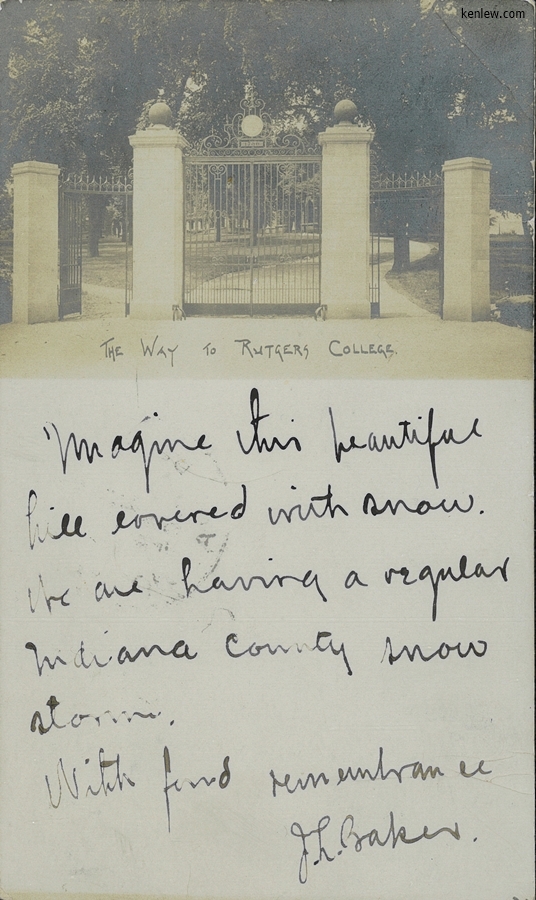 kenlew.com
THE WAY TO RUTGERS COLLEGE.
Imagine this beautiful
hill covered with snow.
We are having a regular
Indiana county snow
storm.
With fond remembrance
J.L. Baker.